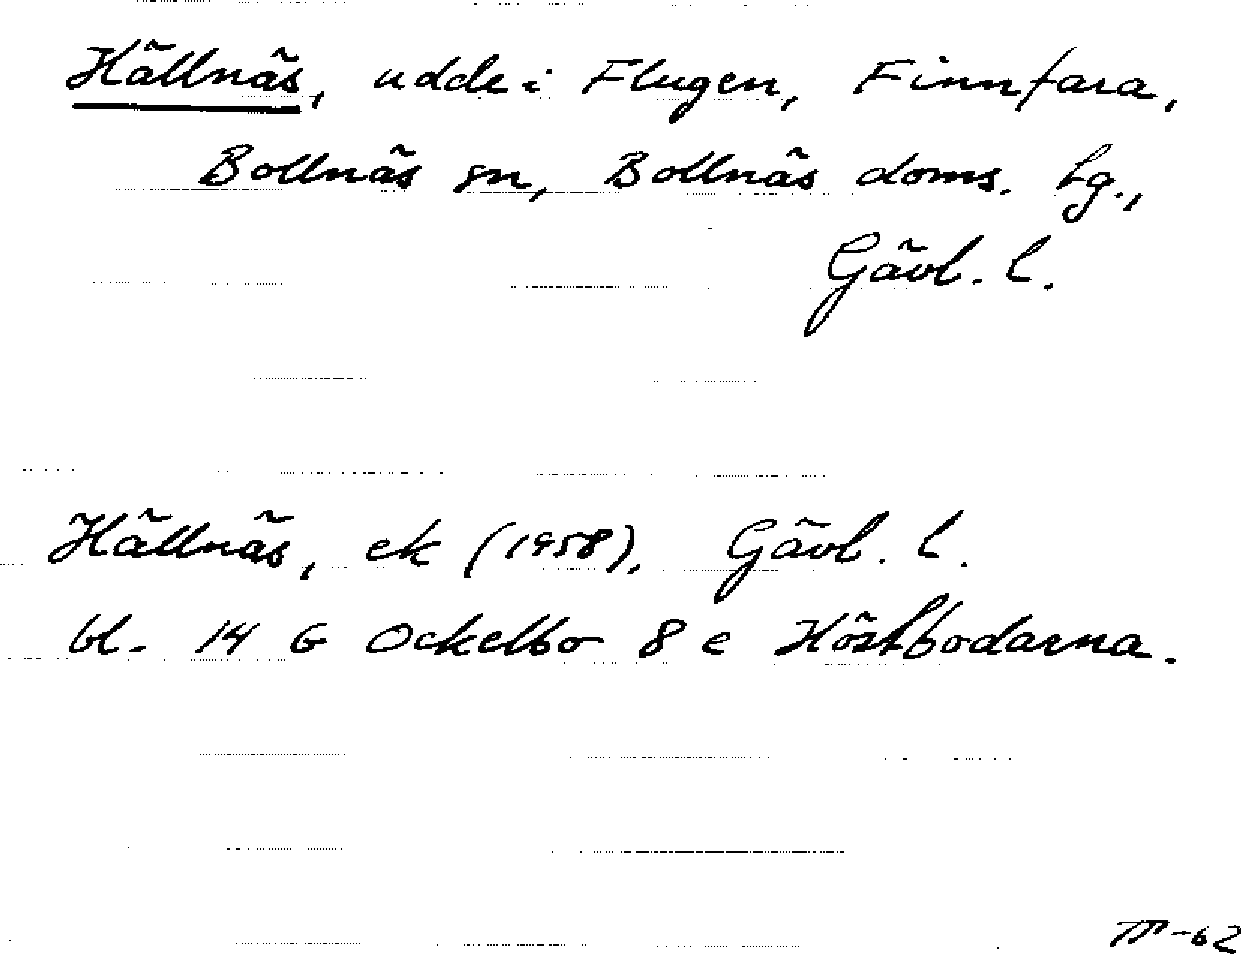 Hällnäs, udde i Flugen, Finnfara,
Bollnäs sn, Bollnäs doms. hg.,
Gävl. l.
Hällnäs, ek (1958), Gävl. l.
bl. 14 G Ockelbo 8 e Höstbodarna.
-62